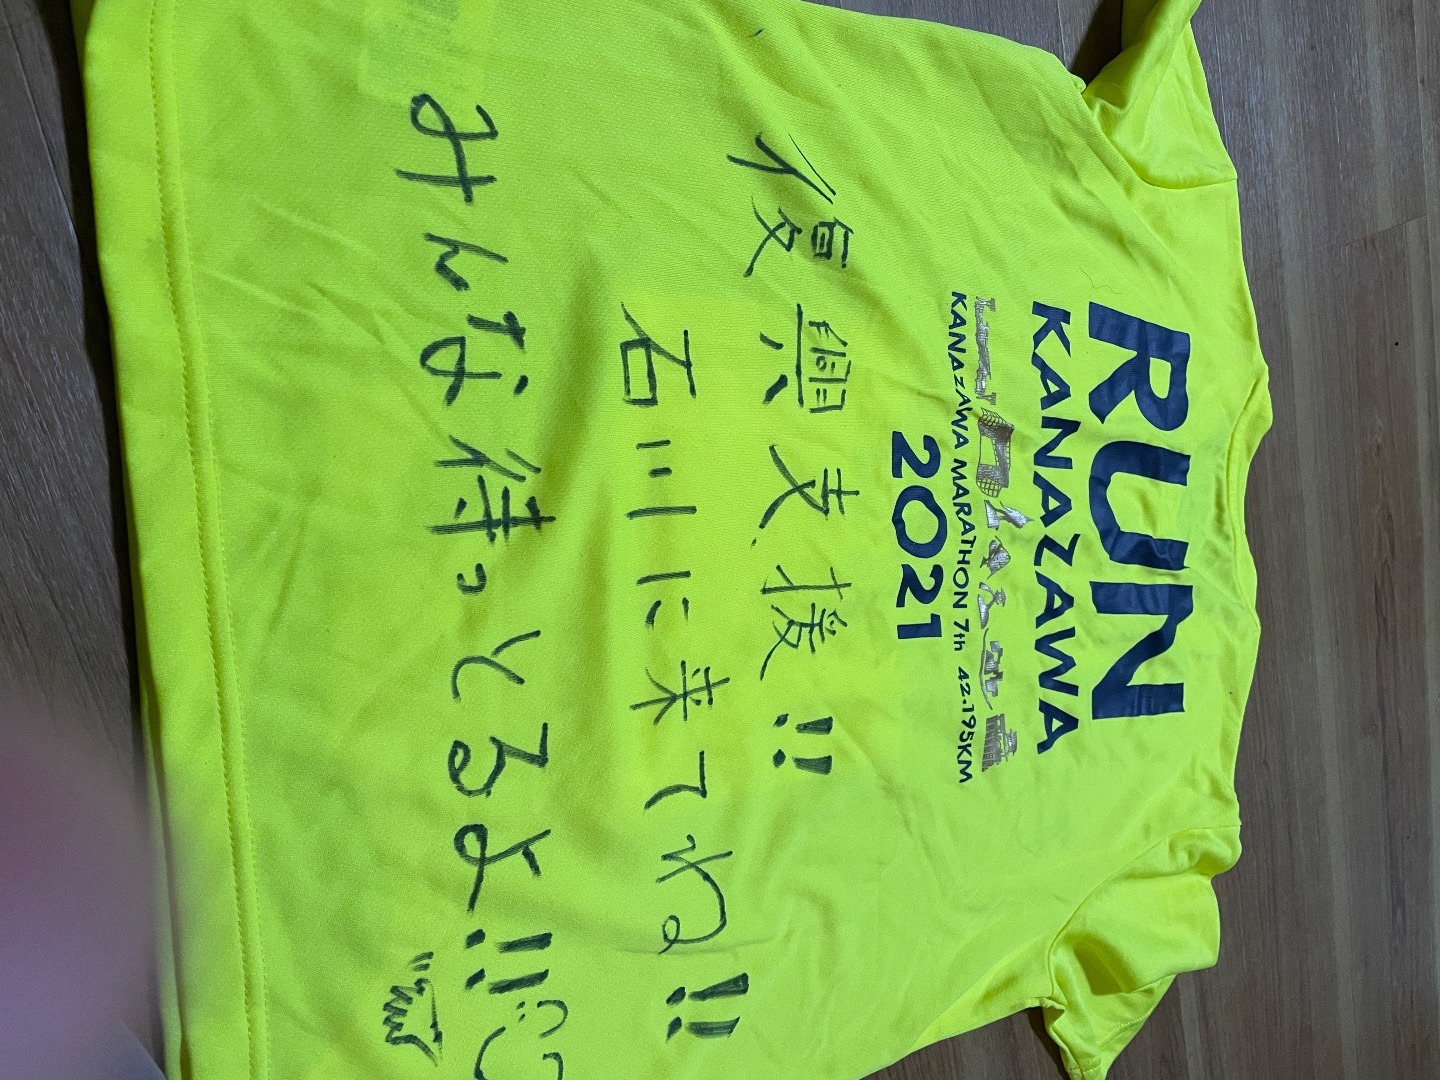 RUN
KANAZAWA
KANAZAWA MARATHON 7th 42.195KM
2021
復興支援!!
石川に来てね!!
みんな待っとるよ!!